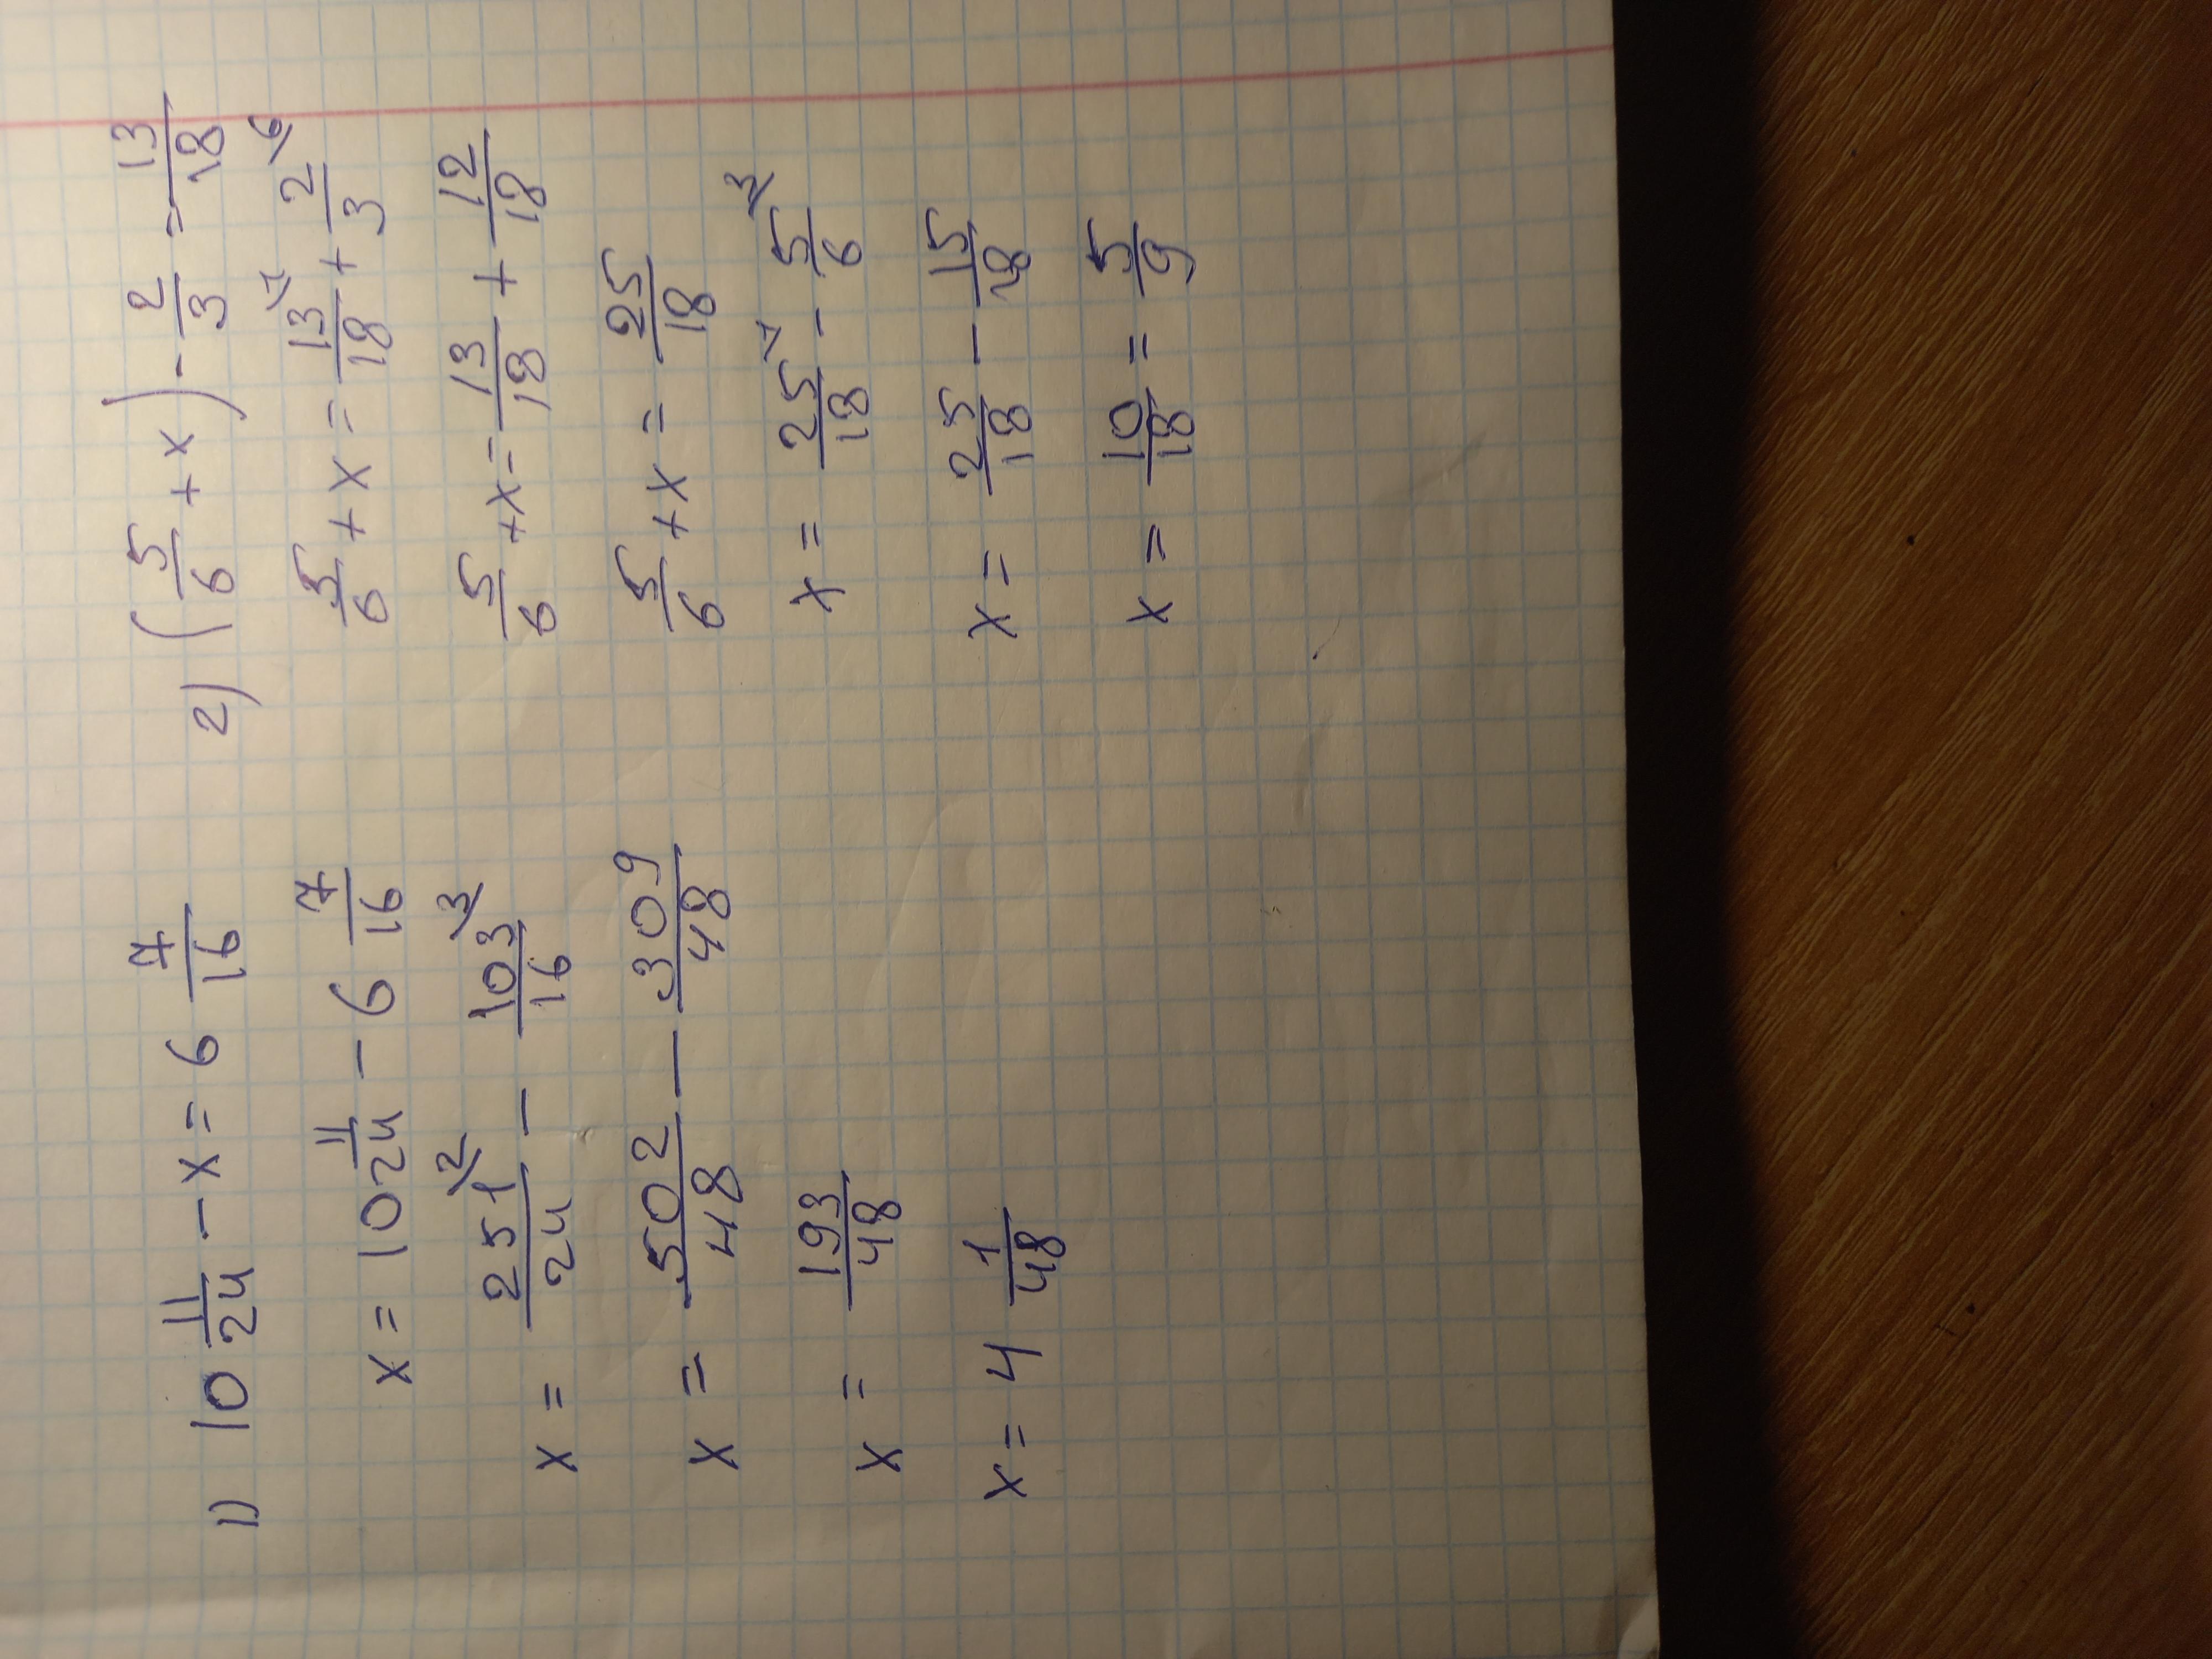 1) 10 11/24 - x = 6 7/16
x = 10 11/24 - 6 7/16
x = 251/24 \2 - 103/16 \3
x = 502/48 - 309/48
x = 193/48
x = 4 1/48
2) (5/6 + x) - 2/3 = 13/18
5/6 + x = 13/18 \1 + 2/3 \6
5/6 + x = 13/18 + 12/18
5/6 + x = 25/18
x = 25/18 \1 - 5/6 \3
x = 25/18 - 15/18
x = 10/18 = 5/9